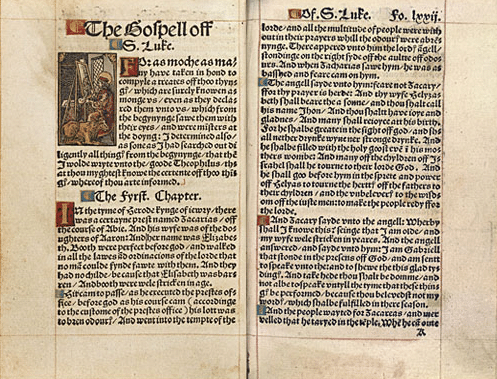 The Gospell off
S. Luke.
For as moche as ma-
ny have taken in hond to
compyle a treates off thoo thyng-
which are surely knowen a-
monge vs / even as they decla
red them vnto vs / which from
the begynynge sawe them with
their eyes / and were ministers at
the doyng: I determined also /
as sone as I had searched out di
ligently all thing from the begynynge / that thē
I wolde wryte vnto the / goode Theophilus / th
at thou myghtest knowe the certente off thoo thi
wher of thou arte informed.
The Fyrst. Chapter.
In the tyme of Herode kynge of iewry / there
was a certayne prest named Zacarias / off
the course of Abie. And his wyfe was of the do
ughters of Aaron: And her name was Elizabe
th. Both were perfect before god / and walked
in all the lawes and ordinacions of the lorde that
no man coulde fynde fawte with them. And they
had no childe / because that Elisabeth was bar
ren / And booth were wele stricken in age.
Hit cam to passe / as he excecuted the prestes of
fice / before god as his course cam (accordinge
to the custome of the prestes office) his lott was
to bren odours / And went into the temple of the
Of. S. Luke. Fo. lxxij.
lorde / and all the multitude of people were with
out in their prayers whill the odours were abre
nynge. There appered vnto him the lordes angell /
stondinge on the right syde off the aultre off odo
urs. And when Zacharias sawe hym / he was a-
basshed and feare cam on hym.
The angell sayde vnto hym: feare not Zacary /
for thy prayer is herde: And thy wyfe Elyza
beth shall beare the a sonne / and thou shalt call
his name Jhon / And thou shalt have ioye and
gladnes / And many shall reioyce att his birth.
For he shalbe greate in the sight off god / and sh
all nether drynke wyne ner stronge drynke. And
he shalbe filled with the holy goost even in his mo
thers wombe: And many off the children off Is
rahel shall he tourne to their lorde God. And
he shall goo before hym in the sprete and power
off Helyas to tourne the herttes off the fathers
to their children / and the vnbelevers to the wisdo
om off the iuste men: to make the people redy ffor
the lorde.
And Zacary sayde vnto the angell: Wherby
shall I knowe this? seinge that I am olde / and
my wyfe wele stricken in yeares. And the angell
answered / and sayde vnto hym: I am Gabriell
that stonde in the presens off God / and am sent
to speake vnto the: and to shewe the this glad ty
dings. And take hede thou shalt be domme / and
not able to speake vntyll the tyme that these thin
be performed / because thou belevedst not my
wordes / which shalbe fulfilled in there season.
And the people wayted for Zacareas / and mer
velled that he taryed in the temple. When he cam oute